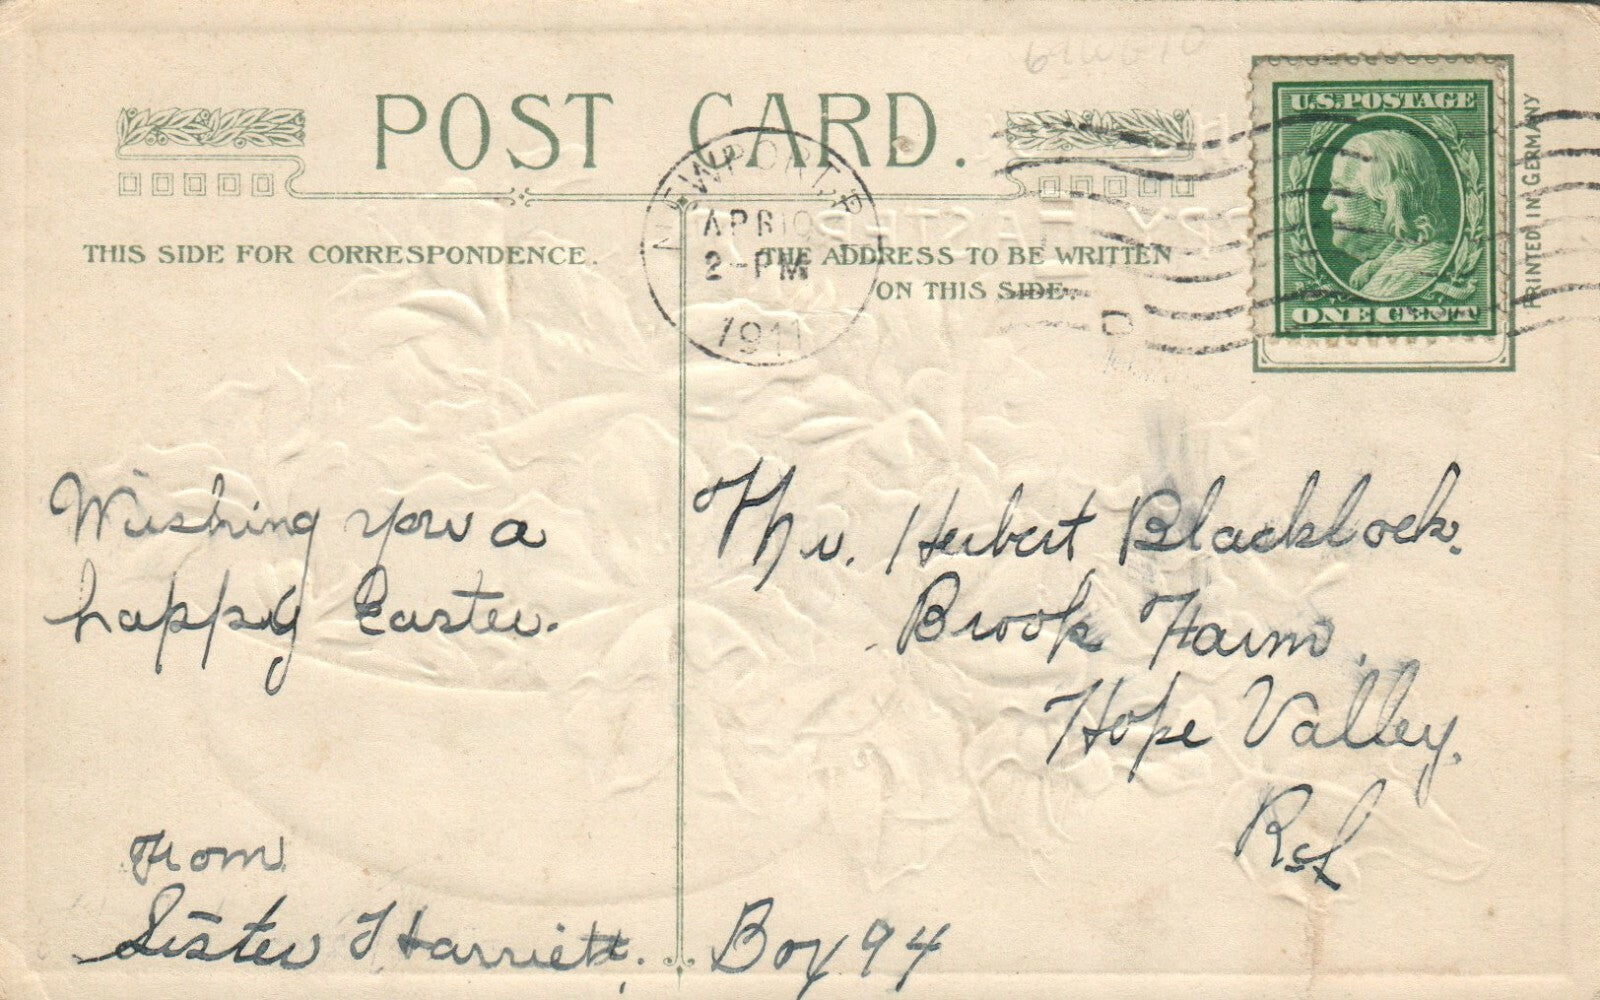 POST CARD.
THIS SIDE FOR CORRESPONDENCE.
THE ADDRESS TO BE WRITTEN
ON THIS SIDE.
NEWPORT, R
APR 19
2-PM
1911
U.S. POSTAGE
ONE CENT
PRINTED IN GERMANY
Wishing you a
happy Easter.
From
Sister Harriett.
Mr. Herbert Blacklock.
Brook Farm,
Hope Valley.
R.I.
Box 94